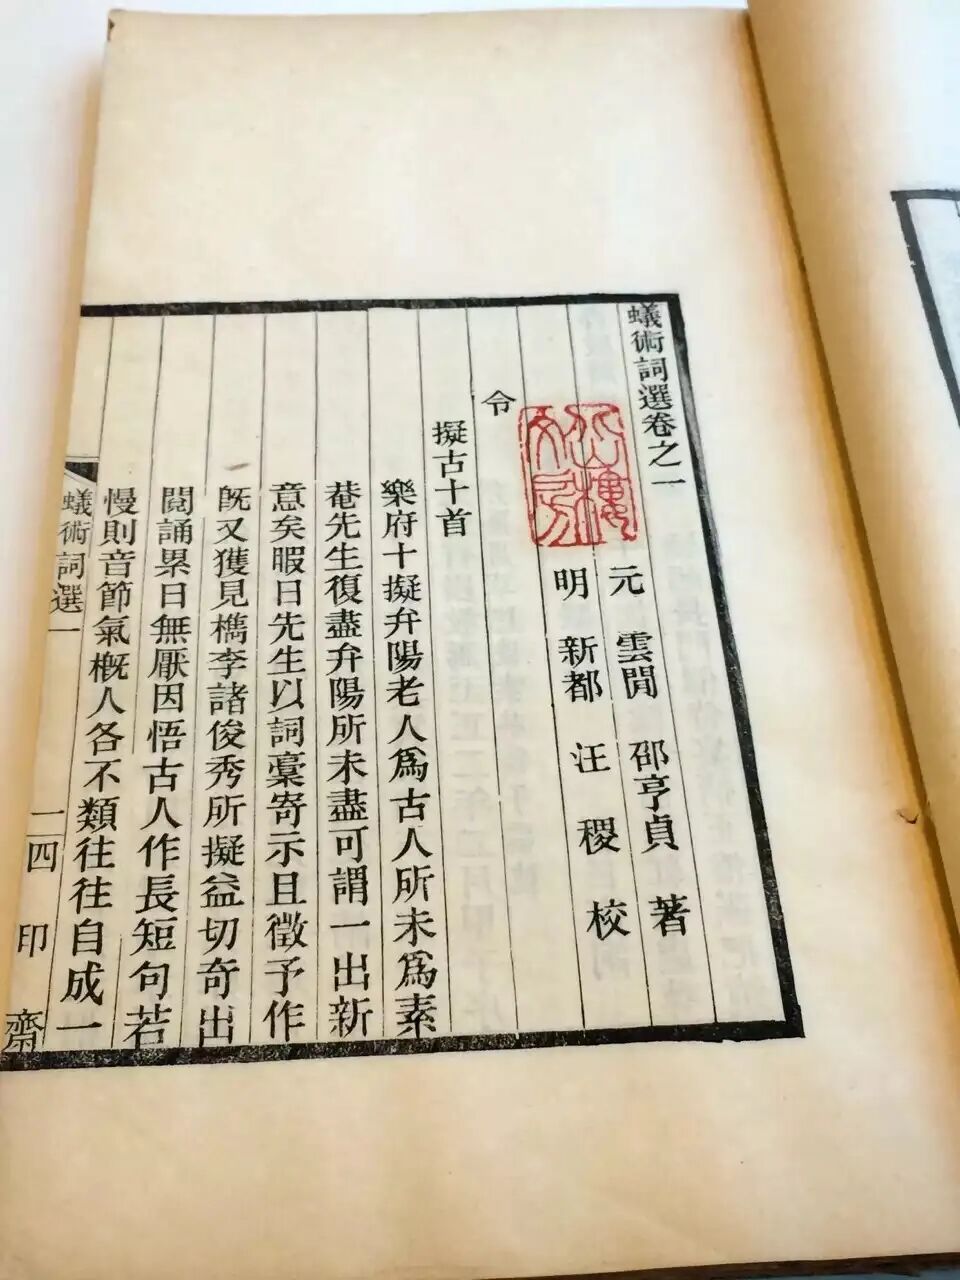 蟻術詞選卷之一
元 雲閒 邵亨貞 著
明 新都 汪稷 校
令
擬古十首
樂府十擬弁陽老人爲古人所未爲素
菴先生復盡弁陽所未盡可謂一出新
意矣暇日先生以詞稾寄示且徵予作
旣又獲見檇李諸俊秀所擬益切奇出
閱誦累日無厭因悟古人作長短句若
慢則音節氣槪人各不類往往自成一
蟻術詞選一
一 四印齋